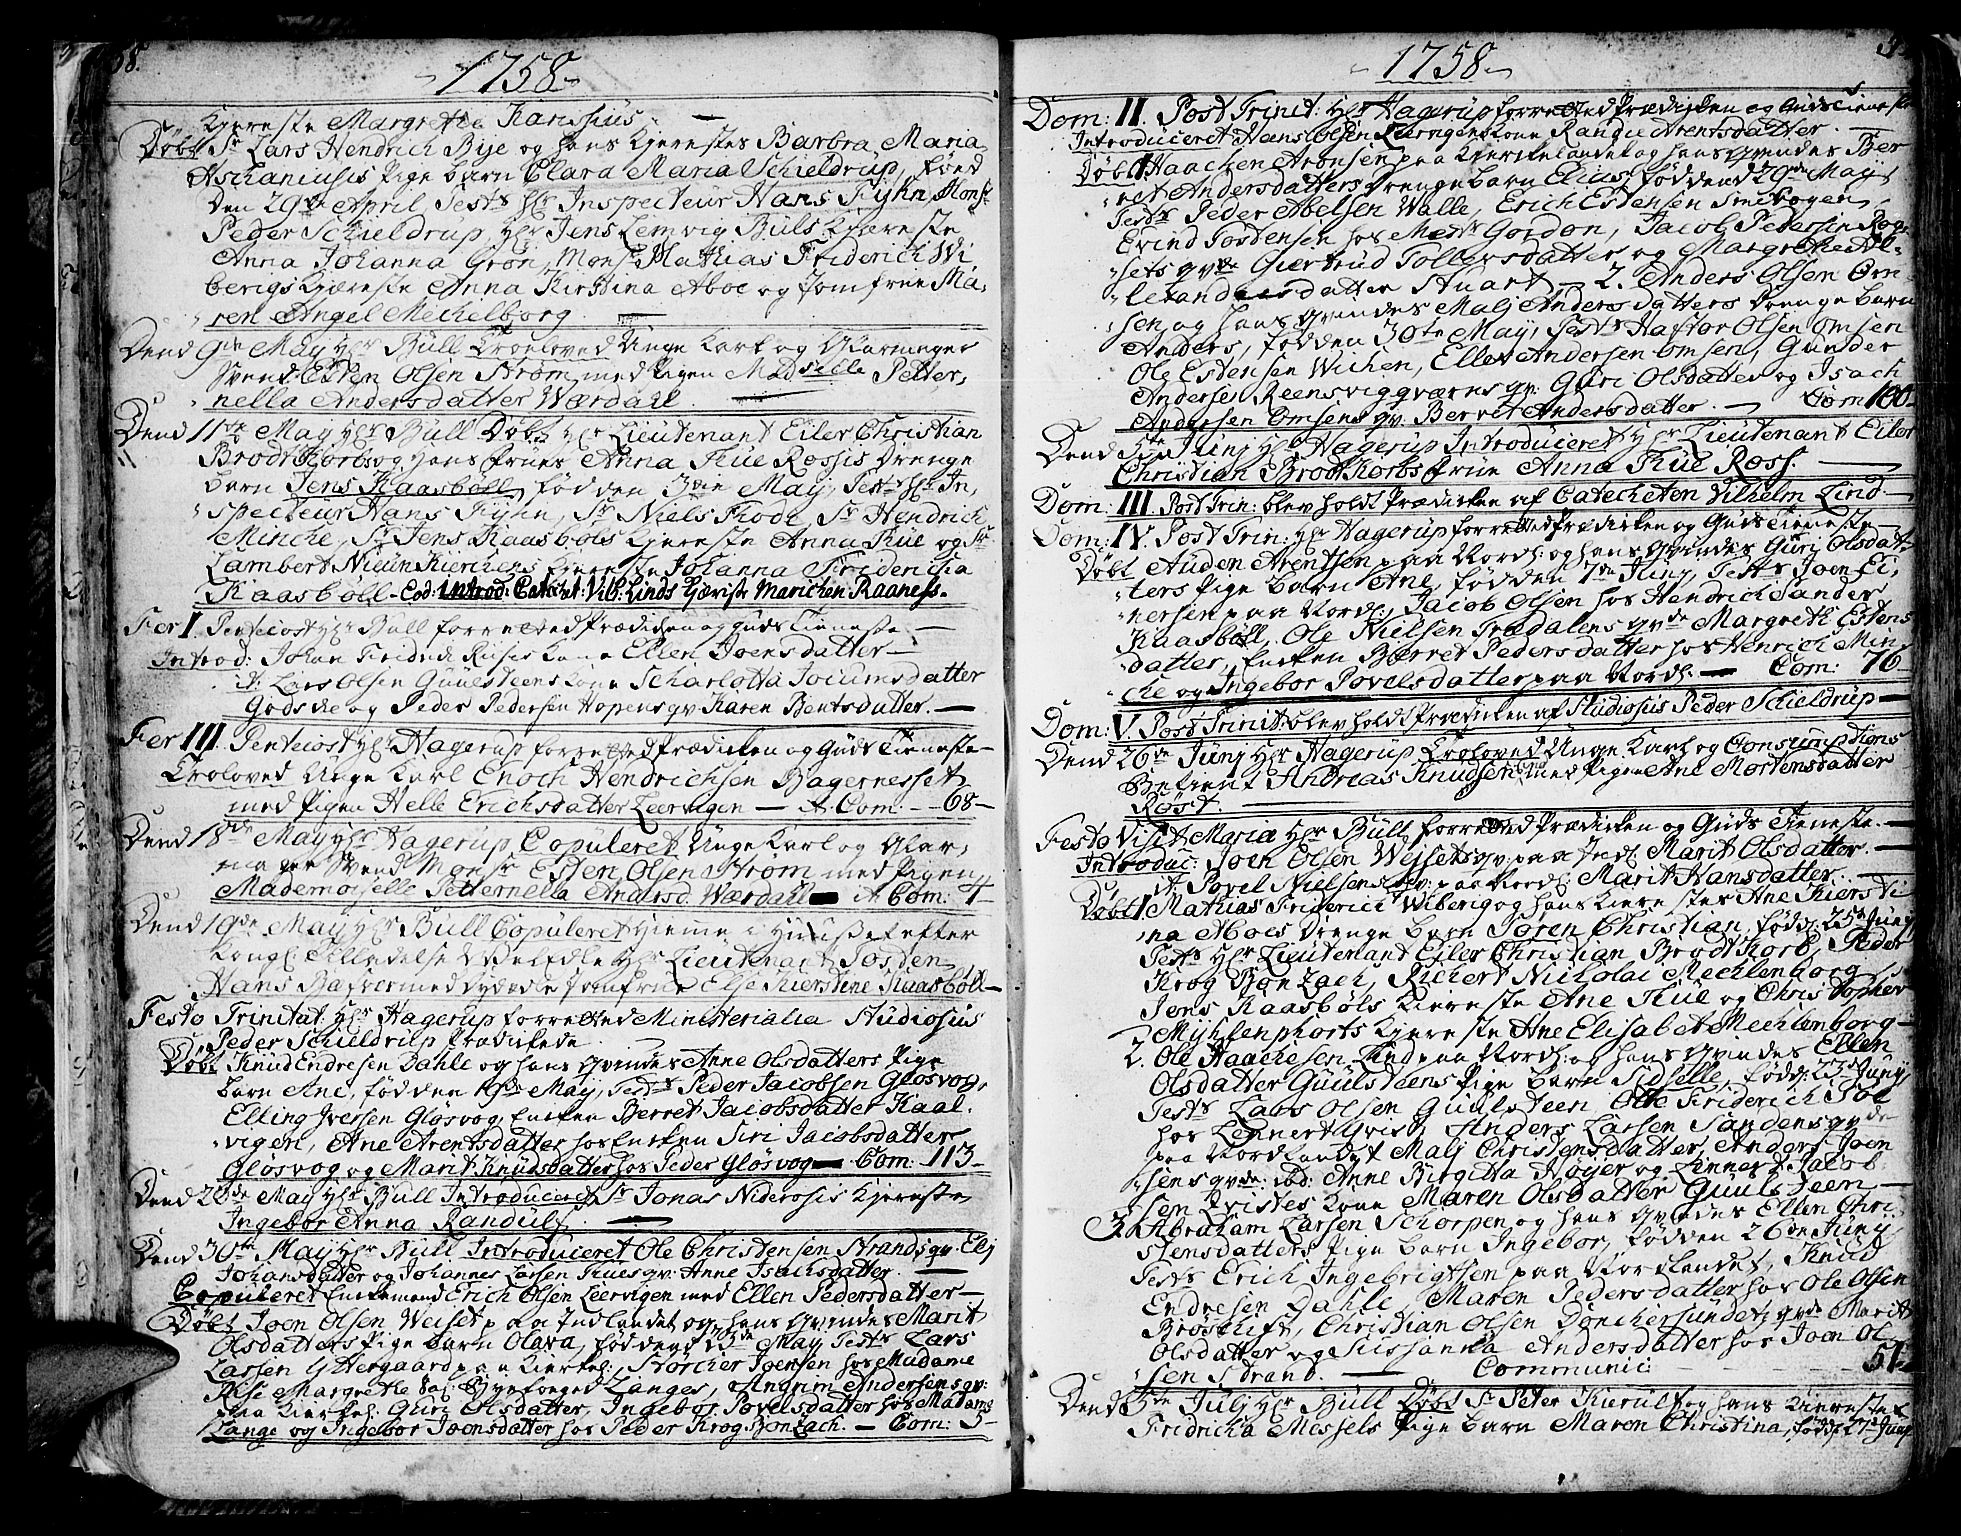 58.
1758
Kjereste Margrethe
Døbt Sr Lars Hendrich Bye og hans Kjerestes Barbra Maria
Aschaniusis Pige Barn Clara Maria Schieldrup, föed
den 29de April Test: Hr Inspecteur Hans Fyhn, Mons:
Peder Schieldrup, Hr Jens Lemvig Buls Kjereste
Anna Johanna Grøn, Mons: Mathias Friderich Wi
berigs Kjereste Anna Kirstina Aboe og Jomfrue Ma,
ren Angel Mechelborg
Dend 9de May Hr Bull Troeloved Unge Karl og Glarmæger
Svend Esten Olsen Strøm med Pigen Madselle Petter,
nella Andersdatter Wærdahl
Dend 11te May Hr Bull Døbt Hr Lieutenant Eiler Christian
BrodtKorbs og hans Frues Anna Kue Rossis Drenge
Barn Jens Kaasböll, födden 3die May, Test: Hr In,
specteur Hans Fyhn, Sr Niels Kode, Sr Hendrich
Minche, Sr Jens Kaasböls Kjereste Anna Kue og Sr
Lambert Kierchens Kjereste Johanna Fridericia
Kaasböll - Eod: Introd: Catechet: Vilh: Linds Kjæriste Marichen Raaness.
Fer I. Pentecost Hr Bull forretted Prædicken og Guds Tieneste
Introd: Johan Fridrich Kone Ellen Joensdatter
it: Lars Olsen Guulsteens Kone Scharlotta Joiumsdatter
Godske og Peder Pedersen Hopens qv: Karen Bentsdatter.
Fer III. Pentecost Hr Hagerup forretted Prædicken og Guds Tieneste
Troloved Unge Karl Enoch Hendrichsen Bagernesset
med Pigen Helle Erichsdatter Leervigen - A. Com: - 68 -
Dend 18de May Hr Hagerup Copuleret Unge Karl og Glar,
mæger Svend Monsr Esten Olsen Strøm med Pigen
Mademoiselle Petternella Andersd. Wærdahl A Com: 4
Dend 19de May Hr Bull Copuleret Hiemme i Huuset efter
Kongl: Tilladelse Velædle Hr Lieutenant Josden
Hans med dydædle Jomfrue Else Kierstine Kaasböll
Festo Trinitat: Hr Hagerup forretted Ministerialia Studiosus
Peder Schieldrup Prædickede
Døbt Knud Endresen Dahle og hans Qvindes Anne Olsdatters Pige
Barn Ane, födden 19de May, Test: Peder Jacobsen Glösvog,
Elling Iversen Glösvog, Encken Berret Jacobsdatter Kaal.
vigen, Ane Arentsdatter hos Encken Siri Jacobsdatter
Glösvog og Marit Knudsdatter hos Peder Glösvog Com: 113
Dend 26de May Hr Bull Introduceret Sr Jonas Niderosis Kjereste
Ingebor Anna Randulf
Dend 30te May Hr Bull Introduceret Ole Christensen Strands qv: Elj
Johansdatter og Johannes Larsen Kues qv: Anne Isachsdatter.
Copuleret Enckemand Erich Olsen Leervigen med Ellen Pedersdatter
Døbt Joen Olsen Weiset paa Indlandet og hans Qvindes Marit
Olsdatters Pige Barn Olava, födden 23de May, Test: Lars
Larsen Yttergaard paa Kierkel:, Störcher Joensen hos Madame
Margrethe Sal: Byefoged Langes, Angrim Andersens qv:
paa Kierkel: Guri Olsdatter, Ingebor Povelsdatter hos Madams
Lange og Ingebor Joensdatter hos Peder Krog Bonzach. - Com: 5
1758
Dom: II. Post Trinit: Hr Hagerup forretted Prædicken og Guds Tieneste
Introduceret Hans Olsen Leervigens Kone Randie Arentsdatter.
Døbt 1 Haachen Aronsen paa Kierkelandet og hans Qvindes Ber
ret Andersdatters Drenge Barn Elias, födden 29de May
Test: Peder Abelsen Walle, Erich Estensen Smebogen,
Evind Tostensen hos Mads Gordon, Jacob Pedersen
sets qvde Giertrud Tollersdatter og Margrethe Al-
lexandersdatter Stuart - 2. Anders Olsen Om-
sen og hans Qvindes Malj Andersdatters Drenge Barn
Anders, födden 30te May, Test: Haftor Olsen Omsen
Ole Estensen Wichen, Eller Andersen Omsen, Gunder
Andersen Reensvigværns qv: Guri Olsdatter og Isach
Andersen Omsens qv: Berret Andersdatter. - Com 100
Dend 5te Junj Hr Hagerup Introduceret Hr Lieutenant Eiler
Christian Brodtkorbs Frue Anna Kue Ross.
Dom: III. Post Trin: blev holdt Prædicken af Catecheten Vilhelm Lind
Dom: IV. Post Trin: Hr Hagerup forrettet Prædicken og Guds Tieneste
Døbt Auden Arentsen paa Nordl: og hans Qvindes Guri Olsdat
ters Pige Barn Ane, födden 7de Junj, Test: Joen Ei,
nersen paa Nordl:, Jacob Olsen hos Hendrich Sander
Kaasböll, Ole Nielsen Trædalens qvde Margreth Estens
datter, Encken Berret Pedersdatter hos Henrich Min
che og Ingebor Povelsdatter paa Nordl: - Com: 76
Dom: V. Post Trinit: blev holdt Prædicken af Studiosus Peder Schieldrup
Dend 26de Junj Hr Hagerup Troloved Unge Karl og Consumptions
Betient Andreas Knudsen med Pigen Ane Mortensdatter
Röst.
Festo Visit: Mariæ Hr Bull forretted Prædicken og Guds Tieneste.
Introduc: Joen Olsen Wejsets qv: paa Indl: Marit Olsdatter.
it Povel Nielsens qv: paa Nordl: Marit Hansdatter.
Døbt 1 Mathias Friderici Wiberig og hans Kierestes Ane Kiersti
na Aboes Drenge Barn Sören Christian, född: 25de Junj
Test: Hr Lieutenant Eiler Christian BrodtKorb, Peder
Krog Bonzach, Richert Nicholai Mechlenborg
Jens Kaasböls Kiereste Ane Kue og Christopher
Myhlenphorts Kjereste Ane Elisabet Mechlenborg
2. Ole Haachesen Lund paa Nordl: og hans Qvindes Ellen
Olsdatter Guulsteens Pige Barn Sidselle, född: 23de Junj
Test: Lars Olsen Guulsteen, Otte Friderich
hos Lennert Qvist, Anders Larsen Sandens qvde
paa Nordlandet Malj Christensdatter, Anders Joen
sens qvde: ibd: Anne Birgitta Höyer og Lennert Jacob
sen Qvistes Kone Maren Olsdatter Guulsteen
3. Abraham Larsen Schorpen og hans Qvindes Ellen Chri,
stensdatters Pige Barn Ingebor, födden 26de Junj
Test: Erich Ingebrigtsen paa Nordlandet, Knud
Endresen Dahle Maren Pedersdatter hos Ole Olsen
Bröskift, Christian Olsen Donchersundetz qvde Marit
Olsdatter og Susanna Andersdatter hos Joen Ol
sen Strand. - Communic: 51
Dend 5te Julj Hr Bull Døbt Sr Peter Kurulf og hans Kierestes
Fridricha Messels Pige Barn Maren Christina, född: 27de Junj